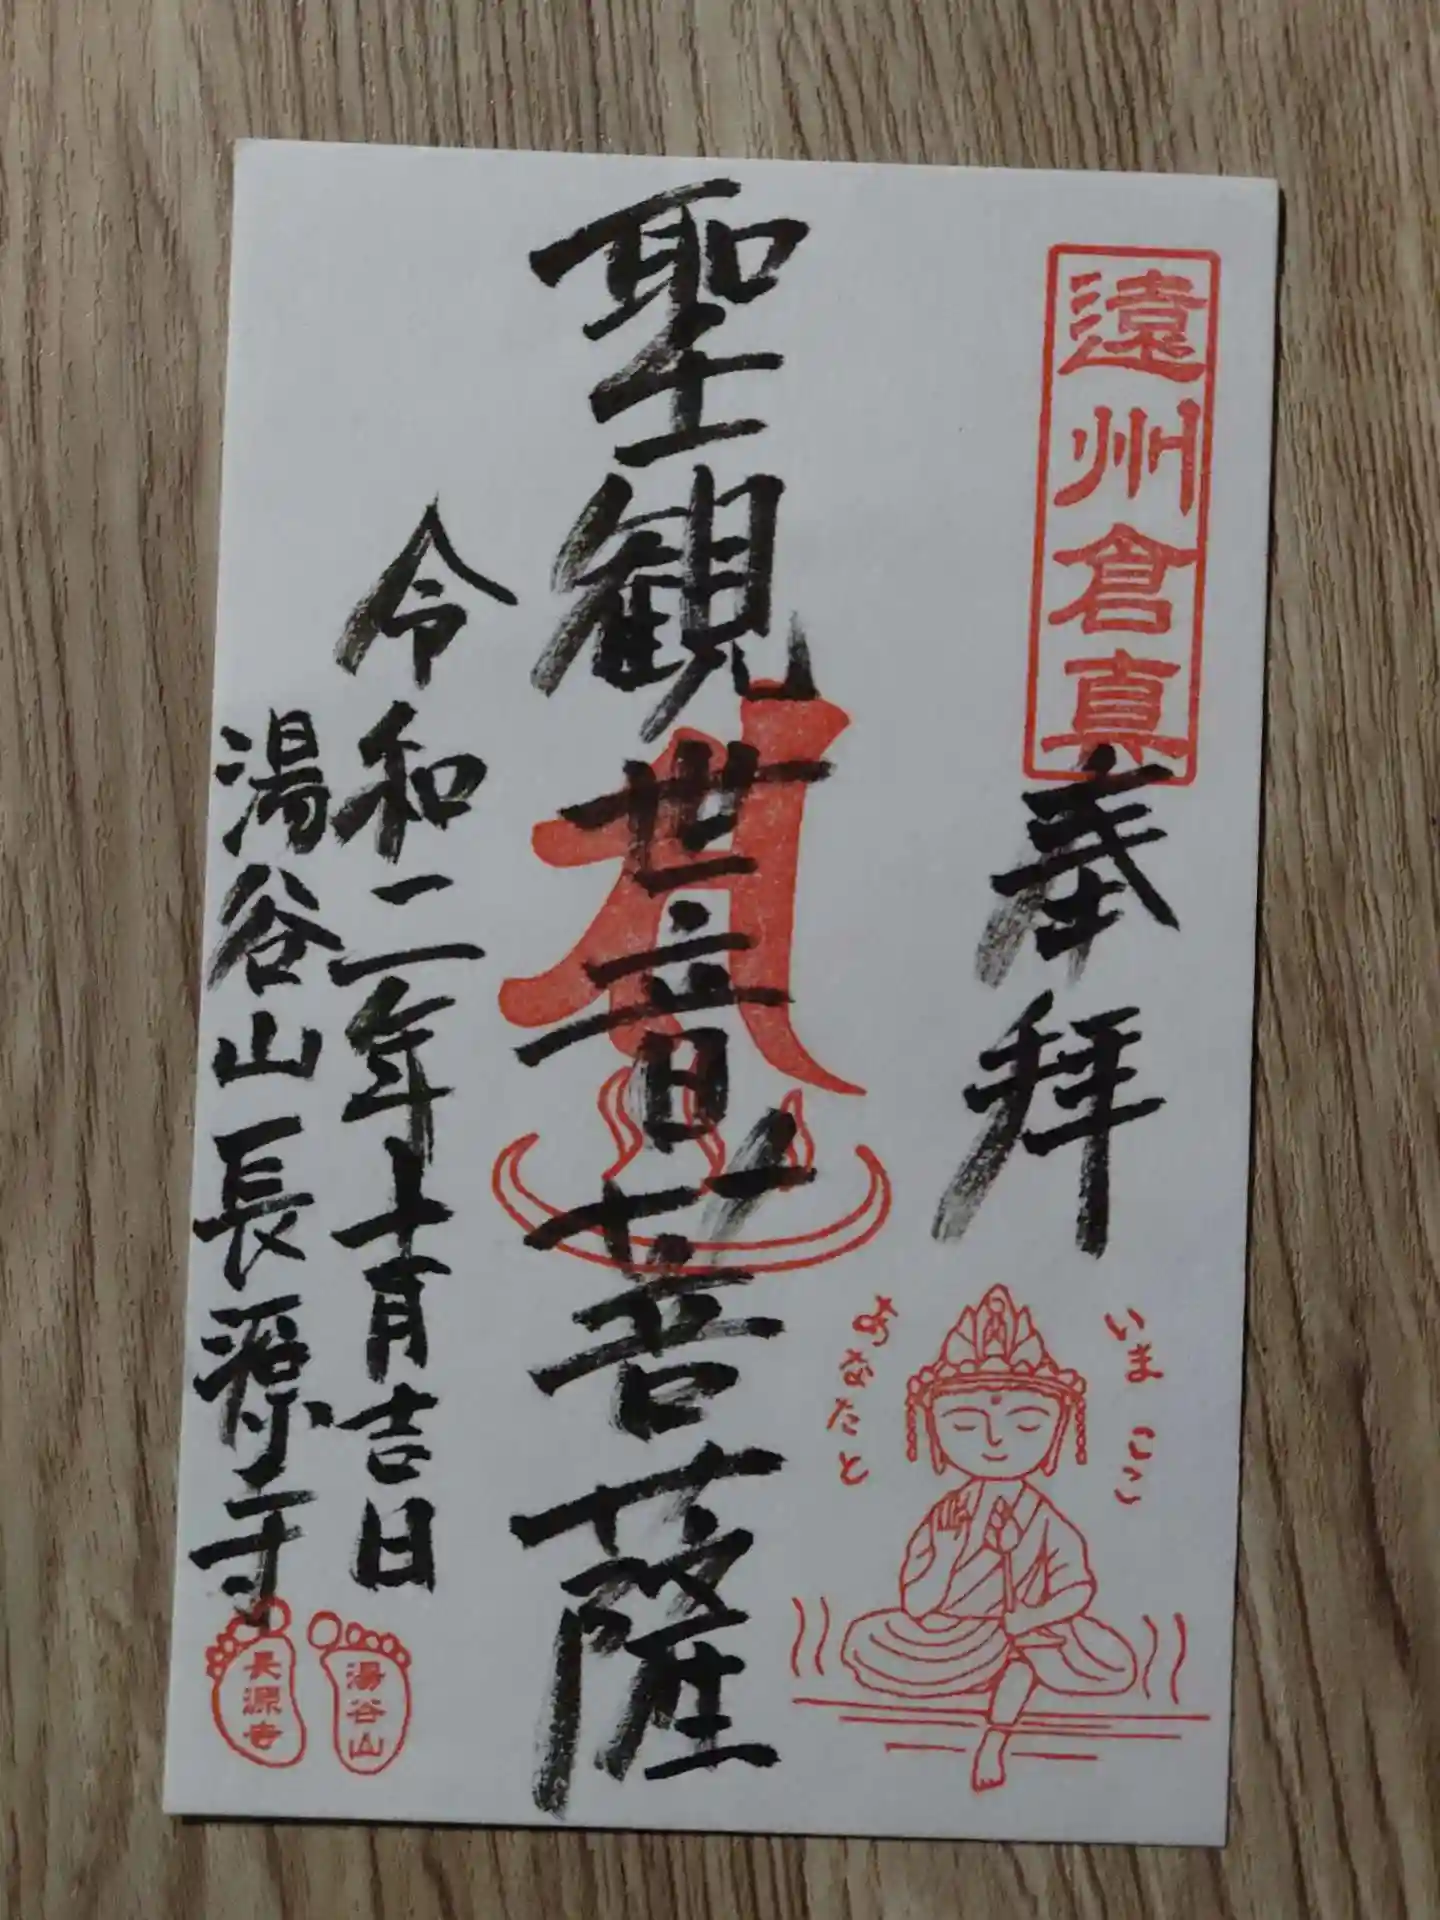 遠州倉真
奉拝
いま ここ
あなたと
聖観世音菩薩
令和二年十月吉日
湯谷山長源寺
湯谷山
長源寺